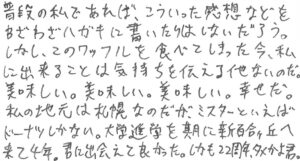 普段の私であれば、こういった感想などを
わざわざハガキに書いたりはしないだろう。
しかし、このワッフルを食べてしまった今、私
に出来ることは気持ちを伝える他ないのだ。
美味しい。美味しい。美味しい。幸せだ。
私の地元は札幌なのだが、ミスターといえば
ドーナツしかない。大学進学を期に新百合ヶ丘へ
来て4年。君に出会えて良かった。しかも22周年